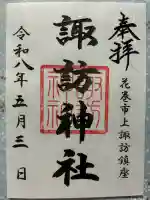 奉拝
花巻市上諏訪鎮座
諏訪神社
令和八年五月三日